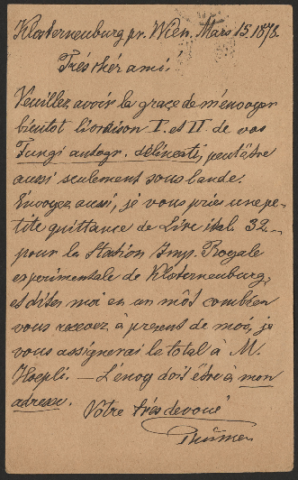 Klosterneuburg pr. Wien. Mars 15. 1878.
Trés thér ami!
Veuillez avoir la grace de m'envoyer
bientot livraison I. et II. de vos
Fungi autogr. delineati, peut être
aussi seulement sous bande.
Envoyez aussi, je vous prie une pe-
tite quittance de Lire ital. 32 –
pour la Station Imp. Royale
experimentale de Klosterneuburg,
et dites moi en un môt combien
vous recevez à present de moi, je
vous assignerai le total à M.
Hoepli. — L'envoy doit être à mon
adresse.
Votre trés devoué
Thümen